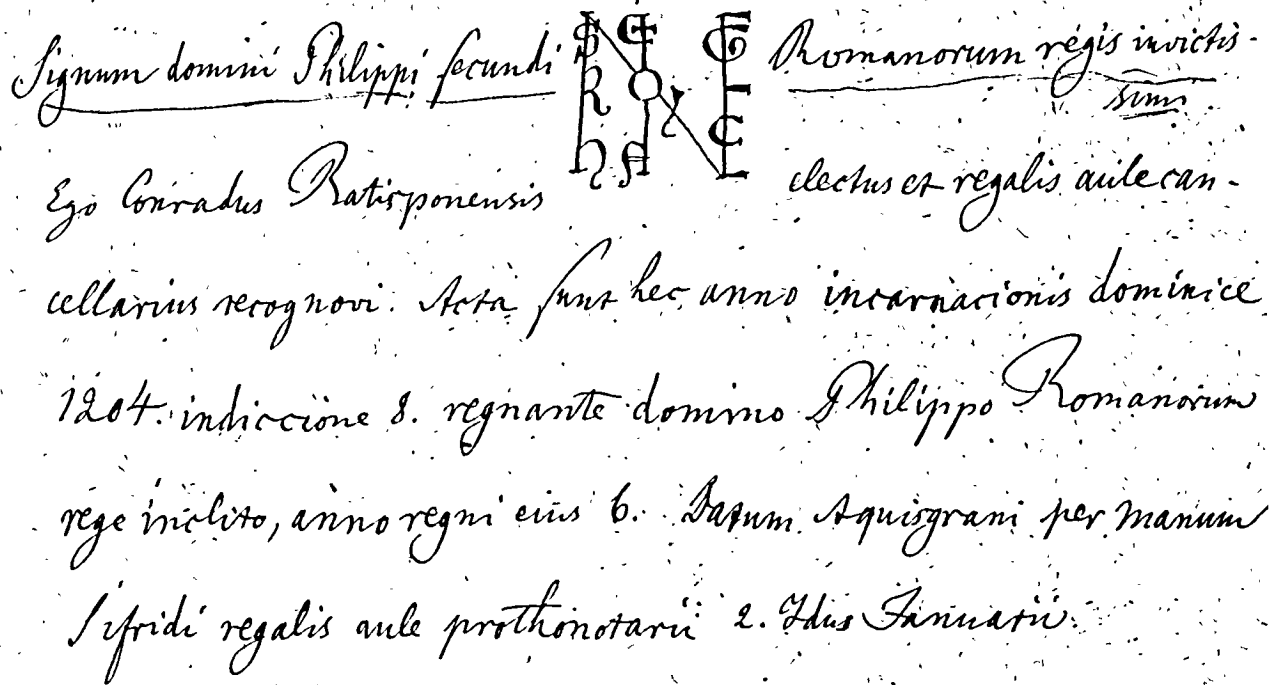 Signum domini Philippi secundi Romanorum regis invictis-
simi.
Ego Conradus Ratisponensis electus et regalis aule can-
cellarius recognovi. Acta sunt hec anno incarnacionis dominice
1204. indiccione 8. regnante domino Philippo Romanorum
rege inclito, anno regni eius 6. Datum Aquisgrani per manum
Sifridi regalis aule prothonotarii 2. Idus Januarii.